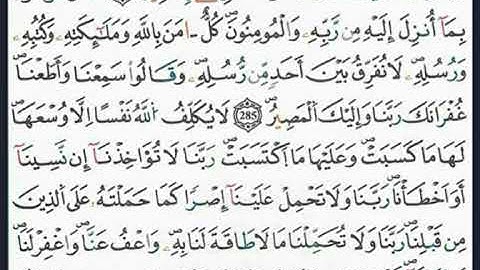 بِمَآ أُنزِلَ إِلَيْهِ مِن رَّبِّهِۦ وَالْمُومِنُونَۖ كُلٌّ ـامَنَ بِاللَّهِ وَمَلَٰٓئِكَتِهِۦ وَكُتُبِهِۦ
وَرُسُلِهِۦۖ لَا نُفَرِّقُ بَيْنَ أَحَدٍ مِّن رُّسُلِهِۦۖ وَقَالُوا۟ سَمِعْنَا وَأَطَعْنَاۖ
غُفْرَانَكَ رَبَّنَا وَإِلَيْكَ الْمَصِيرُۖ 285 لَا يُكَلِّفُ اللَّهُ نَفْسًا اِلَّا وُسْعَهَاۖ
لَهَا مَا كَسَبَتْ وَعَلَيْهَا مَا اَكْتَسَبَتْۖ رَبَّنَا لَا تُوَاخِذْنَآ إِن نَّسِينَآ
أَوَ اَخْطَأْنَاۖ رَبَّنَا وَلَا تَحْمِلْ عَلَيْنَآ إِصْرًا كَمَا حَمَلْتَهُۥ عَلَى الَّذِينَ
مِن قَبْلِنَاۖ رَبَّنَا وَلَا تُحَمِّلْنَا مَا لَا طَاقَةَ لَنَا بِهِۦۖ وَاعْفُ عَنَّاۖ وَاغْفِرْ لَنَاۖ